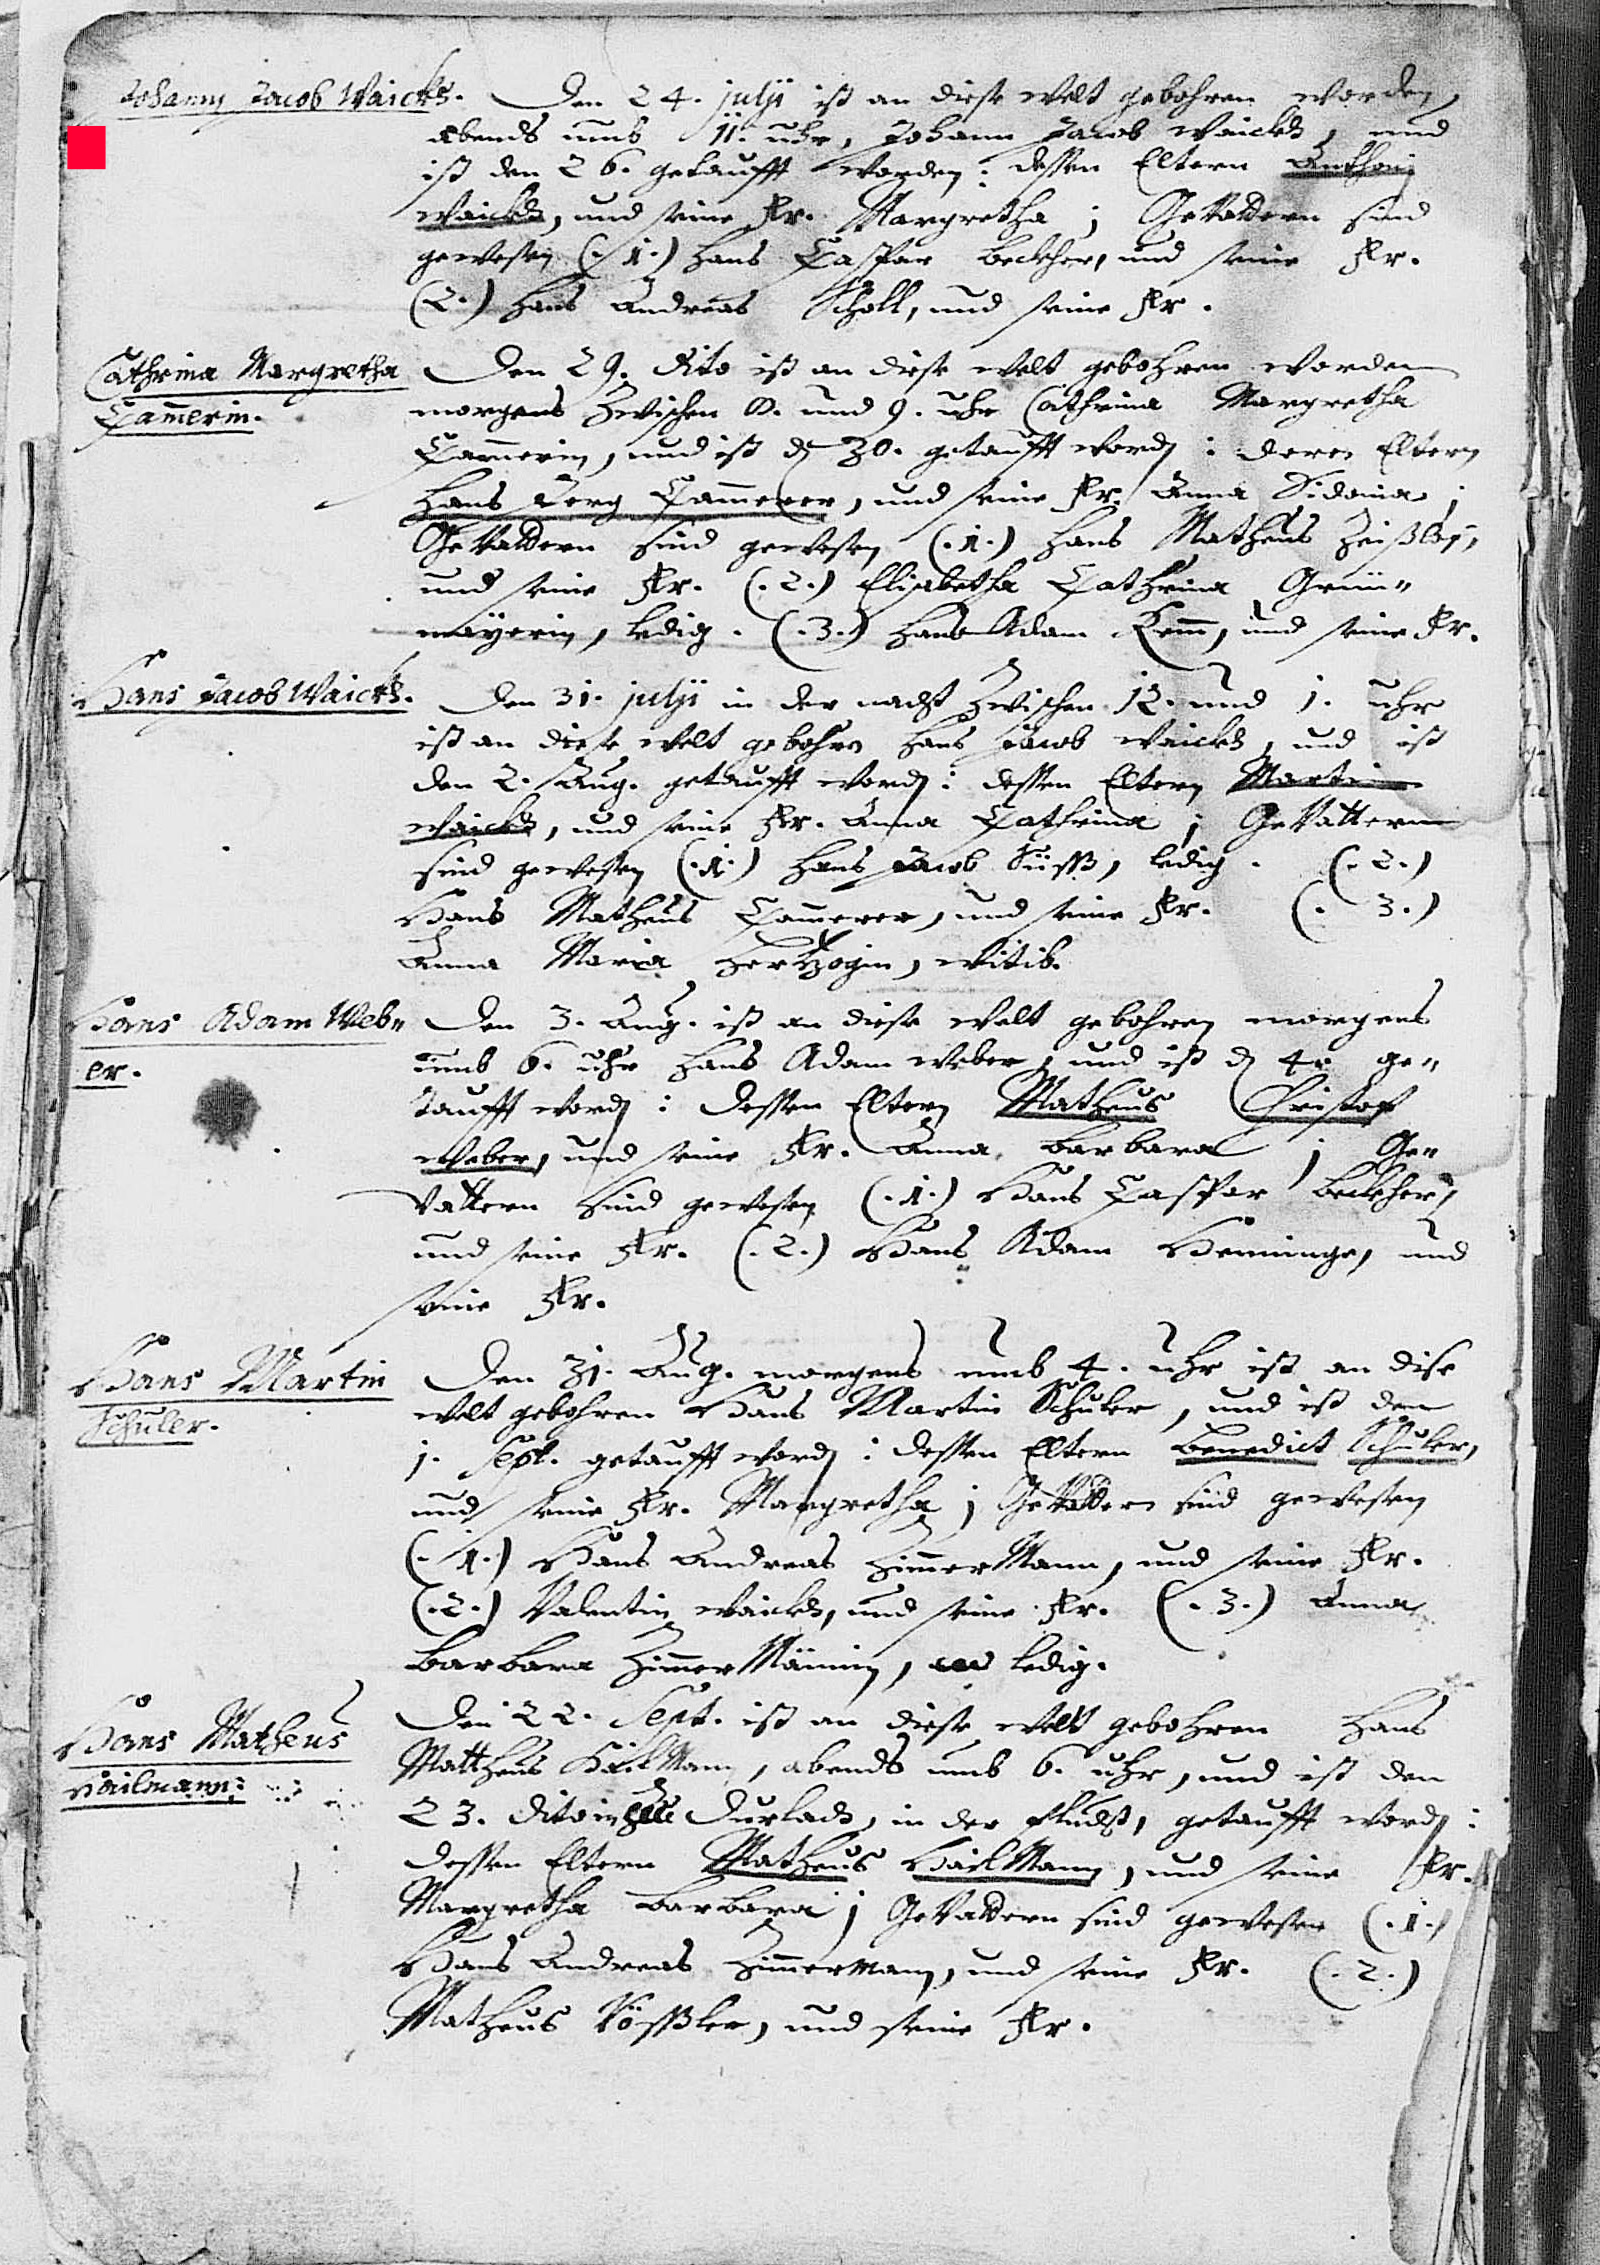 Johann Jacob Waickh.
Den 24. julji ist an diese welt gebohren worden,
abends umb 11. uhr, Johann Jacob Waickh, und
ist den 26. getaufft worden: dessen Eltern Anthonj
Waickh, und seine Fr. Margretha; GeVaddern sind
gewesen (.1.) Hans Caspar Beckher, und seine Fr.
(2.) Hans Andreas Scholl, und seine Fr.
Cathrina Margretha
Camerin.
Den 29. dito ist an diese welt gebohren worden
morgens Zwischen 8. und 9. uhr Cathrina Margretha
Cammerin, und ist d 30. getaufft word: deren Eltern
Hans Jerg Cammerer, und seine Fr. Anna Sidonia;
GeVaddern sind gewesen (.1.) Hans Matheus
und seine Fr. (.2.) Elisabetha Cathrina Grün"
mäyerin, ledig. (.3.) Hans Adam und seine Fr.
Hans Jacob Waickh.
Den 31. julji in der nacht Zwischen 12. und 1. uhr
ist an diese welt gebohren Hans Jacob Waickh, und ist
den 2. Aug. getaufft word: dessen Eltern Martin
Waickh, und seine Fr. Anna Cathrina; GeVattern
sind gewesen (.1.) Hans Jacob Süsß, ledig. (.2.)
Hans Matheus Cammerer, und seine Fr. (.3.)
Anna Maria Hertzogin, witib.
Hans Adam Web"
er.
Den 3. Aug. ist an diese welt gebohren morgens
umb 6. uhr Hans Adam Weber, und ist d 4. ge"
taufft word: dessen Eltern Matheus Christof
Weber, und seine Fr. Anna Barbara; Ge"
Vattern sind gewesen (.1.) Hans Caspar Beckher,
und seine Fr. (.2.) Hans Adam Henninger, und
seine Fr.
Hans Martin
Schuler.
Den 31. Aug. morgens umb 4. uhr ist an dise
welt gebohren Hans Martin Schuler, und ist den
1. Sept. getaufft word: dessen Eltern Benedict Schuler,
und seine Fr. Margretha; GeVaddern sind gewesen
(.1.) Hans Andreas ZimmerMann, und seine Fr.
(.2.) Valentin Waickh, und seine Fr. (.3.) Anna
Barbara ZimmerMännin, ledig.
Hans Matheus
Hailmann:
Den 22. Sept. ist an diese welt gebohren Hans
Mattheus HailMann, abends umb 6. uhr, und ist den
23. dito in Durlach, in der flucht, getaufft word:
dessen Eltern Matheus HailMann, und seine Fr.
Margretha Barbara; GeVaddern sind gewesen (.1.)
Hans Andreas Zimmermann, und seine Fr. (.2.)
Matheus Rößler, und seine Fr.